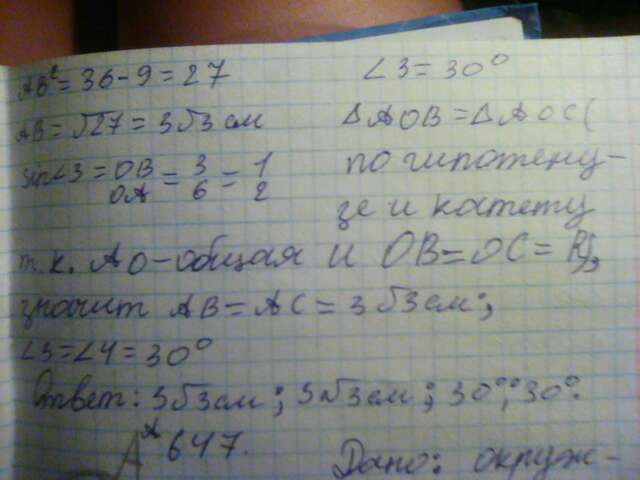 AB² = 36 - 9 = 27
AB = √27 = 3√3 см
sin∠3 = OB/OA = 3/6 = 1/2
∠3 = 30°
△AOB = △AOC (
по гипотену-
зе и катету
т.к. AO - общая и OB = OC = R),
значит AB = AC = 3√3 см;
∠3 = ∠4 = 30°
Ответ: 3√3 см; 3√3 см; 30°; 30°.
647.
Дано: окруж-